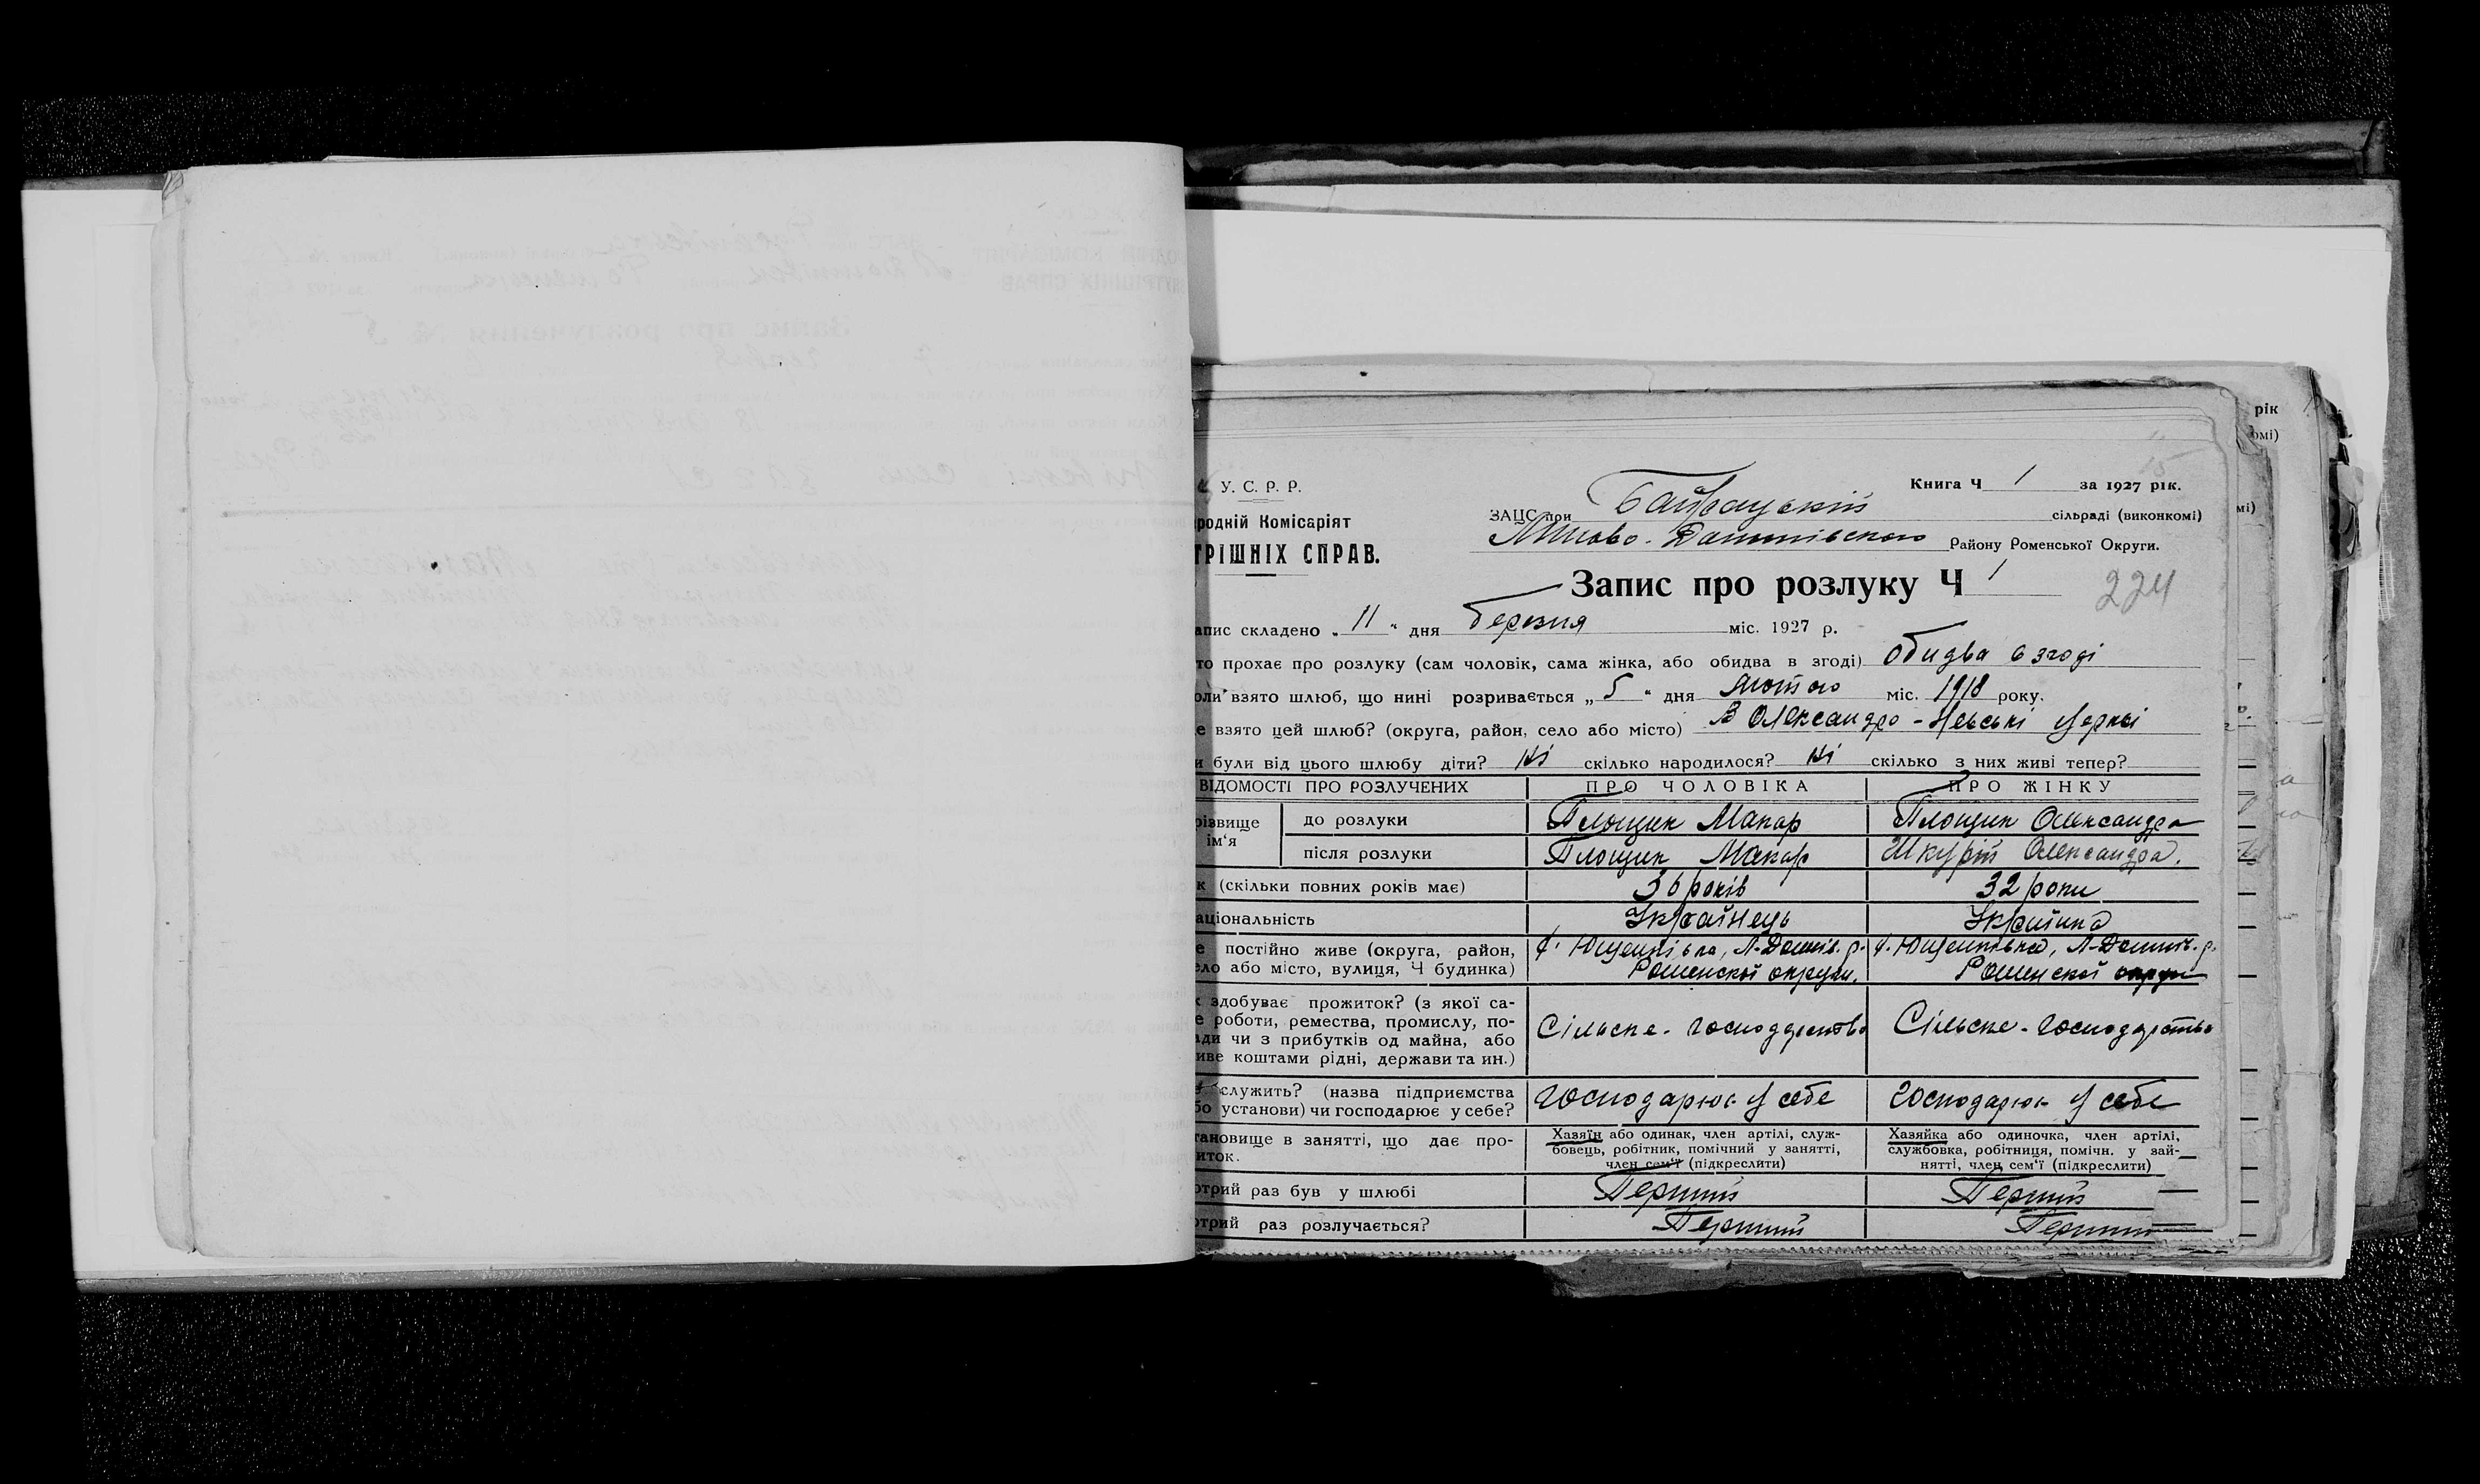 рік
омі)
мі)
У. С. Р. Р.
Книга Ч 1 за 1927 рік.
родній Комісаріят
ЗАЦС при Байрацькій сільраді (виконкомі)
ТРІШНІХ СПРАВ.
Липово-Долинського Району Роменської Округи.
Запис про розлуку Ч 1
224
апис складено „ 11 “ дня березня міс. 1927 р.
то прохає про розлуку (сам чоловік, сама жінка, або обидва в згоді) обидва в згоді
оли взято шлюб, що нині розривається „ 5 “ дня лютого міс. 1918 року.
е взято цей шлюб? (округа, район, село або місто) В Олександро-Невські церкві
и були від цього шлюбу діти? Ні скілько народилося? Ні скілько з них живі тепер?
ВІДОМОСТІ ПРО РОЗЛУЧЕНИХ ПРО ЧОЛОВІКА ПРО ЖІНКУ
різвище
ім‘я
до розлуки Площик Макар Площик Олександра
після розлуки Площик Макар Шкурій Олександра.
к (скільки повних років має) 36 років 32 роки
аціональність Українець Українка
е постійно живе (округа, район, х. Ющенківка, Л.-Долин. р. х. Ющенківка, Л-Долин. р.
ело або місто, вулиця, Ч будинка) Роменської округи. Роменської округи
к здобуває прожиток? (з якої са-
е роботи, ремества, промислу, по-
ади чи з прибутків од майна, або
иве коштами рідні, держави та ин.)
Сільске-господарство Сільске-господарство
служить? (назва підприємства
бо установи) чи господарює у себе?
господарює у себе господарює у себе
тановище в занятті, що дає про-
иток.
Хазяїн або одинак, член артілі, служ-
бовець, робітник, помічний у занятті,
член сем‘ї (підкреслити)
Хазяйка або одиночка, член артілі,
службовка, робітниця, помічн. у зай-
нятті, член сем‘ї (підкреслити)
отрий раз був у шлюбі Перший Перший
отрий раз розлучається? Перший Перший